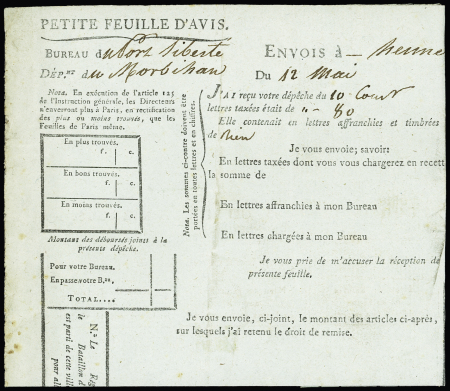 PETITE FEUILLE D'AVIS.
BUREAU du Port Liberté
DÉP.NT du Morbihan
Nota. En exécution de l'Article 125
de l'Instruction générale, les Directeurs
n'enverront plus à Paris, en rectification
des plus ou moins trouvés, que les
Feuilles de Paris même.
En plus trouvés.
f. c.
En bons trouvés.
f. c.
En moins trouvés.
f. c.
Montant des déboursés joints à la
présente dépêche.
Pour votre Bureau.
En passe votre B.au
TOTAL....
Nota. Les sommes ci-contre doivent être
portées en toutes lettres et en chiffres.
ENVOIS à
Du 12 Mai
J'AI reçu votre dépêche du 10 Cour.t
lettres taxées étais de " - 80
Elle contenait en lettres affranchies et timbrées
de Rien
Je vous envoie; savoir:
En lettres taxées dont vous vous chargerez en recett
la somme de
En lettres affranchies à mon Bureau
En lettres chargées à mon Bureau
Je vous prie de m'accuser la réception de
présente feuille.
Je vous envoie, ci-joint, le montant des articles ci-après,
sur lesquels j'ai retenu le droit de remise.
N.o Le Rég
le Bataillon d
est parti de cette vill
pour all